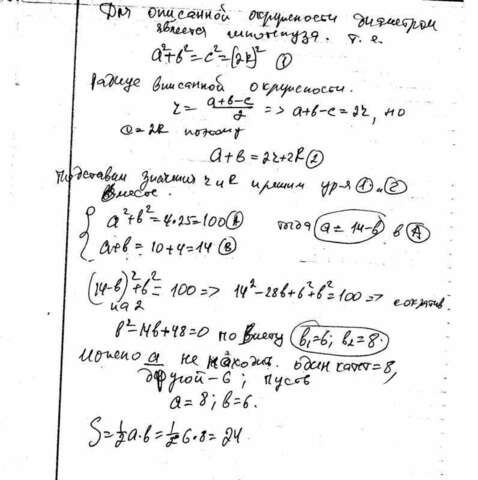 Для описанной окружности диаметром
является гипотенуза. т.е.
a²+b²=c²=(2R)² ①
Радиус вписанной окружности.
r=(a+b-c)/2 => a+b-c=2r, но
c=2R поэтому
a+b=2r+2R ②
Подставим значения r и R и решим ур-я ① и ②
Вместе.
{ a²+b²=4·25=100 Ⓐ тогда a=14-b в Ⓐ
a+b=10+4=14 Ⓑ
(14-b)²+b²=100 => 14²-28b+b²+b²=100 => сократив
на 2
b²-14b+48=0 по Виету b₁=6; b₂=8.
Можно a не находить. один катет=8,
другой-6; пусть
a=8; b=6.
S=½a·b=½6·8=24